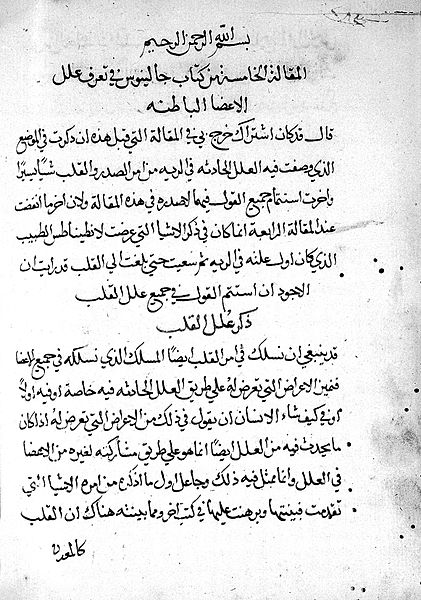 بسم الله الرحمن الرحيم
المقالة الخامسة من كتاب جالينوس في تعرف علل
الاعضا الباطنه
قال قد كان اشتراك خرج بي في المقالة التي قبل هذه ان ذكرت في الموضع
الذي وصفت فيه العلل الحادثه في الريه من امر الصدر والقلب شيا يسيرا
واخرت استتمام جميع القول فيهما لاصدره في هذه المقالة ولان اخر ما انقضت
عنده المقالة الرابعة انما كان في ذكر الاشيا التي عرضت لانطيناطس الطبيب
الذي كان اول علته في الريه ثم سعيت حتى بلغت الي القلب قد رايت ان
الاجود ان استتم القول في جميع علل القلب
ذكر علل القلب
قد ينبغي ان نسلك في امر القلب ايضا المسلك الذي نسلكه في جميع الاعضا
فنميز الاعراض التي تعرض له علي طريق العلل الحادثه فيه خاصة او فيه اولا
او في كيف شاء الانسان ان يقول في ذلك من الاعراض التي تعرض له اذا كان
ما يحدث فيه من العلل ايضا انما هو علي طريق مشاركته لغيره من الاعضا
في العلل وانا ممثل فيه ذلك وجاعل اول ما اذكره من امره الاشيا التي
تقدمت فبينتها وبرهنت عليها في كتب اخر ومما بينته هناك ان القلب
كالمعدن